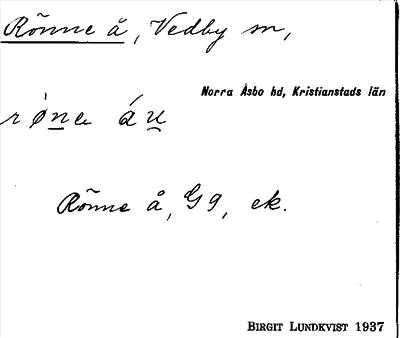 Rönne å, Vedby sn,
Norra Åsbo hd, Kristianstads län
Rönne å, G9, ek.
BIRGIT LUNDKVIST 1937